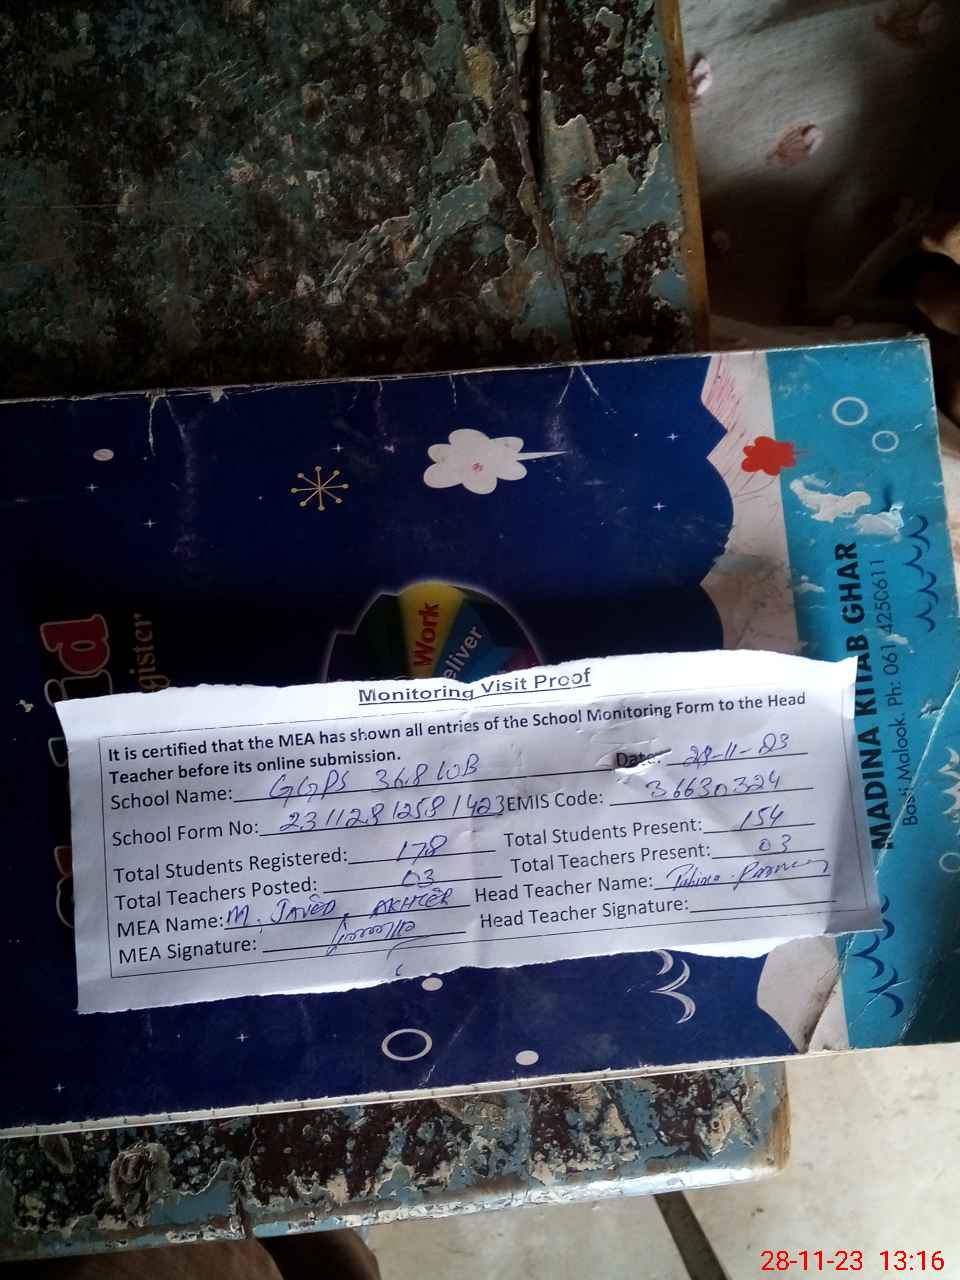 Work
eliver
gister
MADINA KITAB GHAR
Basti Malook. Ph: 061 4250611
Monitoring Visit Proof
It is certified that the MEA has shown all entries of the School Monitoring Form to the Head
Teacher before its online submission.
Date: 28-11-23
School Name: GGPS 368 WB
School Form No: 23112812581423 EMIS Code: 36630324
Total Students Registered: 178 Total Students Present: 154
Total Teachers Posted: 03 Total Teachers Present: 03
MEA Name: M. JAVED AKHTER Head Teacher Name:
MEA Signature: Head Teacher Signature:
28-11-23 13:16